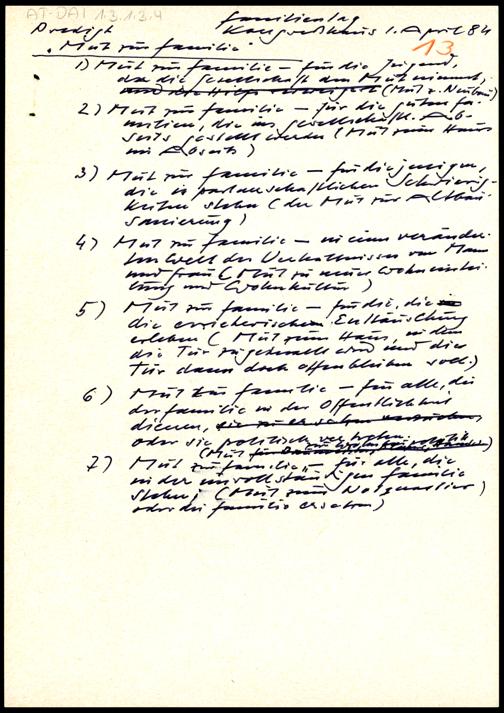 AT-DAI 1.3.1.3.4
Familientag
Predigt Kongresshaus 1. April 84
"Mut zur Familie" 13
1) Mut zur Familie – für die Jugend,
da die Gesellschaft den Mut nimmt,
und die Hilfe verweigert (Mut z. Neubau)
2) Mut zur Familie – für die guten Fa-
milien, die ins gesellschaftl. Ab-
seits gestellt werden (Mut zum Haus
im Abseits)
3) Mut zur Familie – für diejenigen,
die in partnerschaftlichen Schwierig-
keiten stehen (der Mut zur Altbau-
sanierung)
4) Mut zur Familie – in einer veränder-
ten Welt der Verhältnisse von Mann
und Frau (Mut zu neuer Wohneinrich-
tung und Wohnkultur)
5) Mut zur Familie – für die, die
die erzieherischen Enttäuschung
erleben (Mut zum Haus, in dem
die Tür zugeknallt wird und die
Tür dann doch offenbleiben soll.)
6) Mut zur Familie – für alle, die
der Familie in der Öffentlichkeit
dienen,
oder sie politisch vertreten.
(Mut zur Wohnbaupolitik)
7) Mut zur Familie – für alle, die
in der unvollständigen Familie
stehen, (Mut zum Notquartier)
oder die Familie ersetzen)